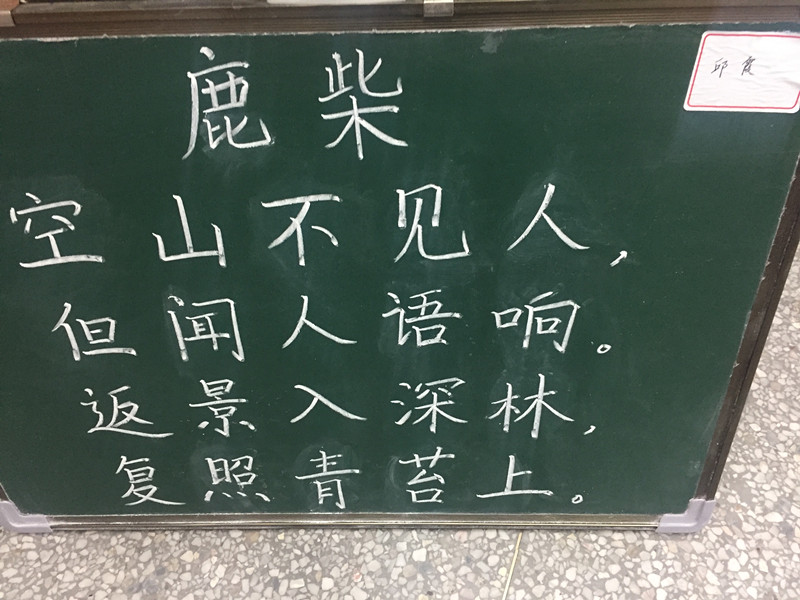 鹿柴
邱霞
空山不见人，
但闻人语响。
返景入深林，
复照青苔上。